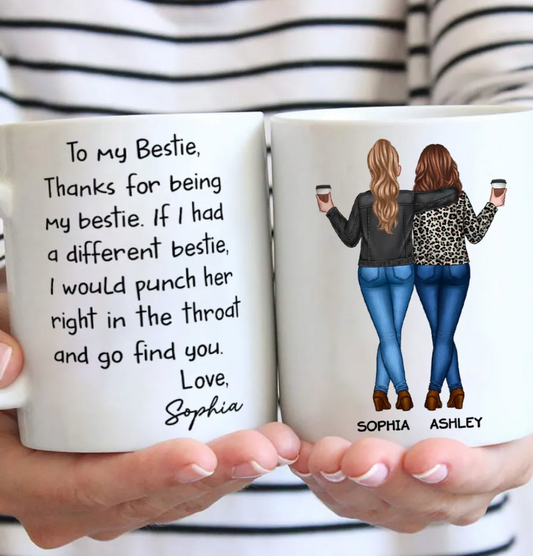 To my Bestie,
Thanks for being
my bestie. If I had
a different bestie,
I would punch her
right in the throat
and go find you.
Love,
Sophia
SOPHIA ASHLEY